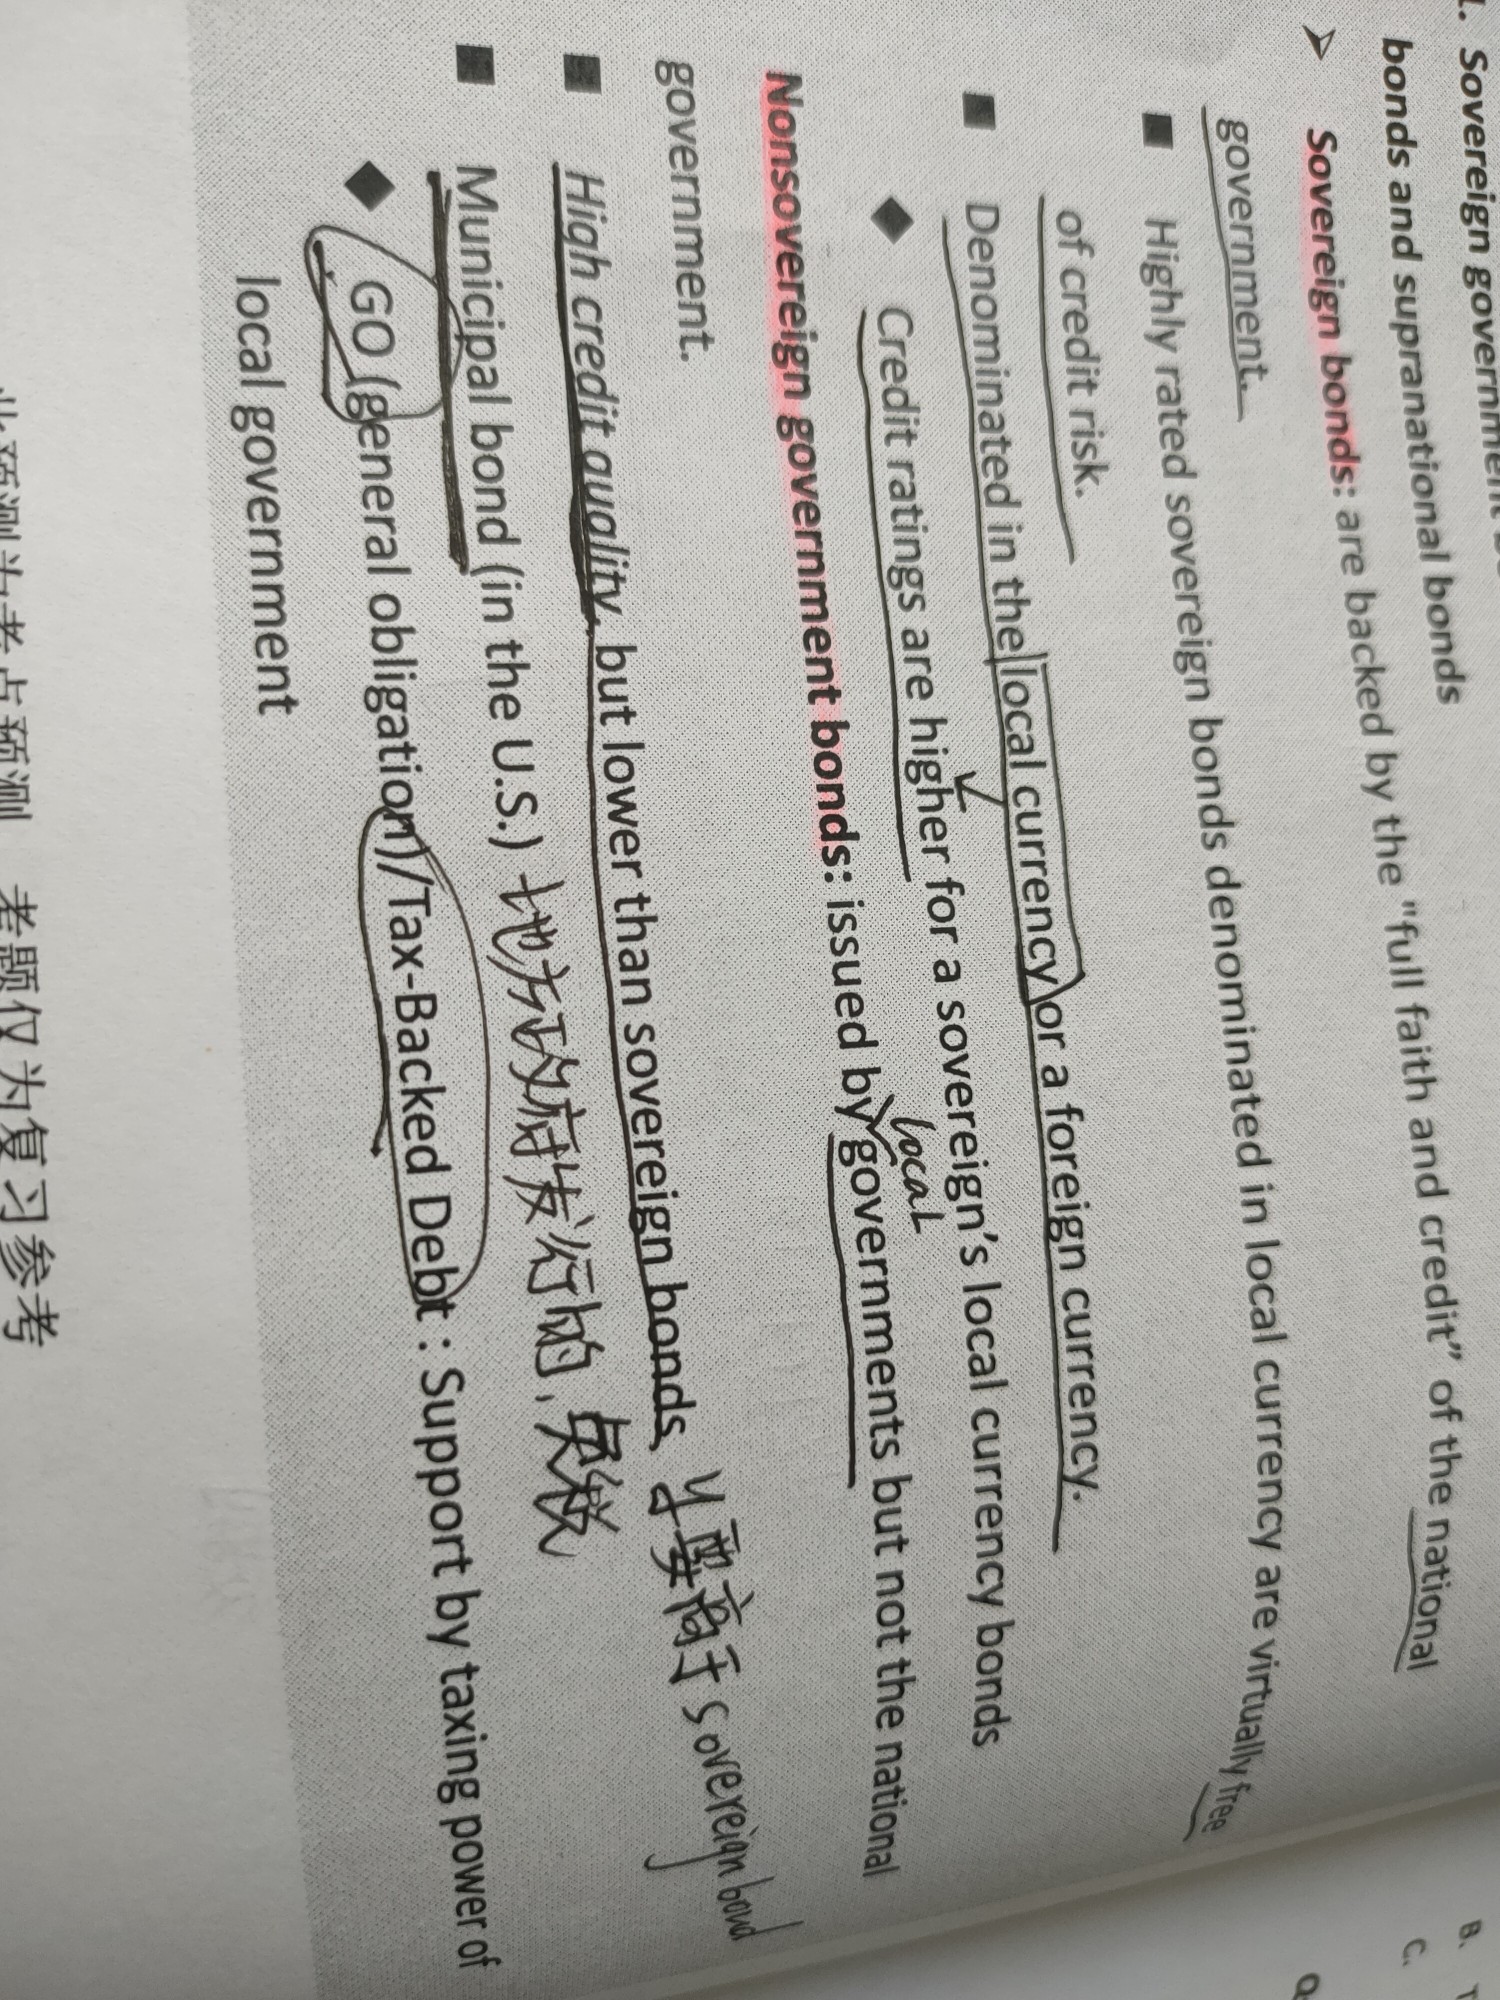 1. Sovereign government
bonds and supranational bonds
➢ Sovereign bonds: are backed by the "full faith and credit" of the national
government.
■ Highly rated sovereign bonds denominated in local currency are virtually free
of credit risk.
■ Denominated in the local currency or a foreign currency.
◆ Credit ratings are higher for a sovereign's local currency bonds
local
Nonsovereign government bonds: issued by governments but not the national
government.
■ High credit quality, but lower than sovereign bonds, 要高于 sovereign bond
■ Municipal bond (in the U.S.) 地方政府发行的, 免税
◆ GO (general obligation)/Tax-Backed Debt : Support by taxing power of
local government
考点预测 考题仅为复习参考
B. T
C.
Q